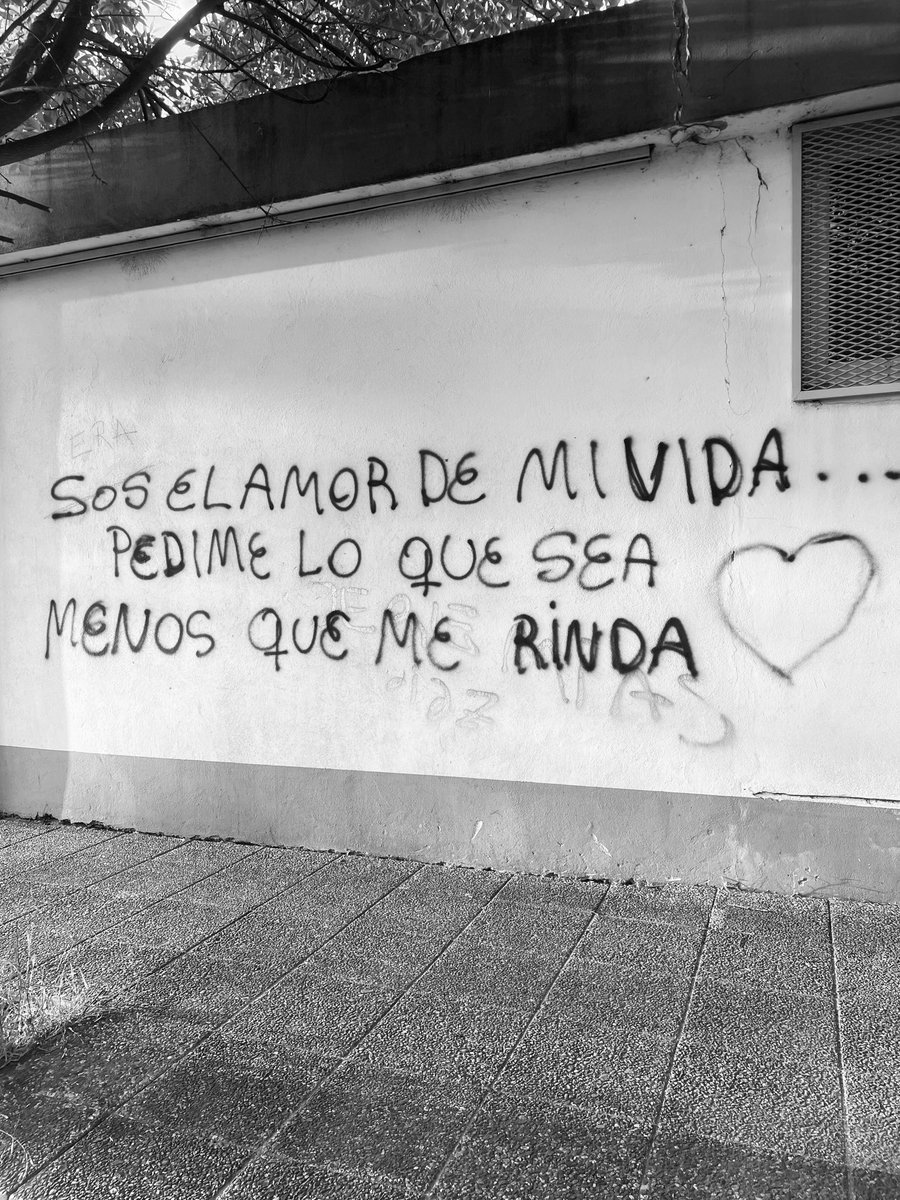 ERA
SOS EL AMOR DE MI VIDA....
PEDIME LO QUE SEA
MENOS QUE ME RINDA